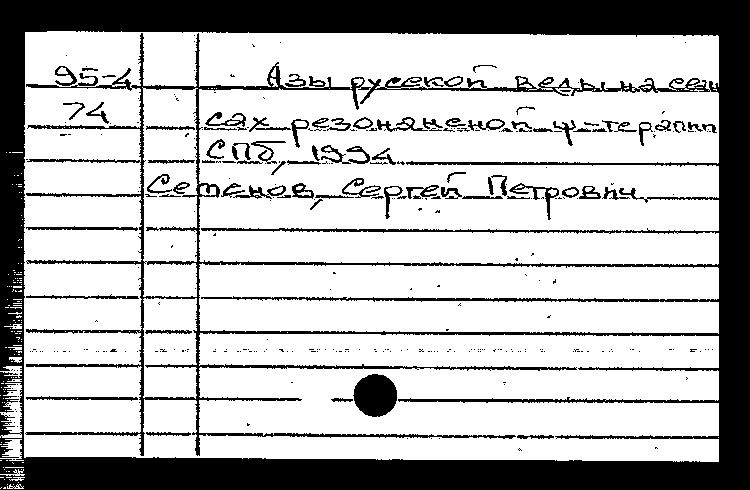 95-4 Азы русской веды на сеан
74 сах резонансной ψ-терапии
СПб, 1994
Семенов, Сергей Петрович.